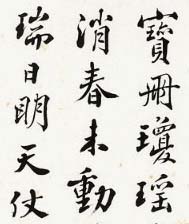 寶冊瓊瑶
消春未動
瑞日明天仗